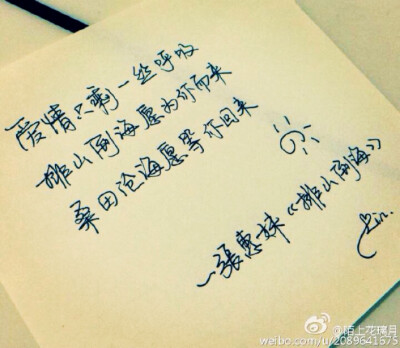 爱情只剩一丝呼吸
排山倒海愿为你而来
桑田沧海愿等你回来
—張惠妹《排山倒海》
@陌上花摘月
weibo.com/u/2089641575